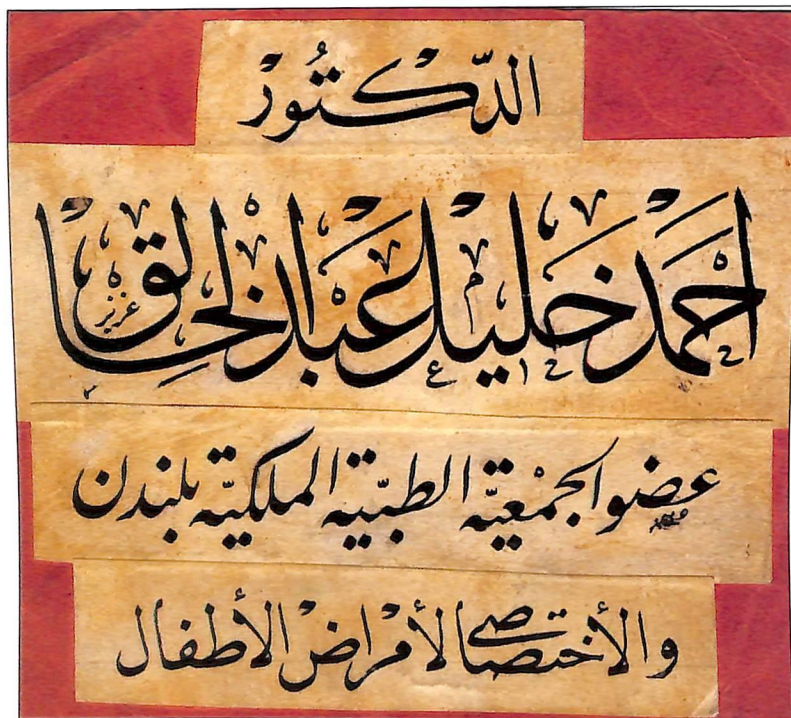 الدّكتُور
احمد خليل عبد الخالق
عزيز
عضو الجمْعيّة الطبيّة الملكيّة بلندن
والأختصاصي لأمْراضْ الأطفال